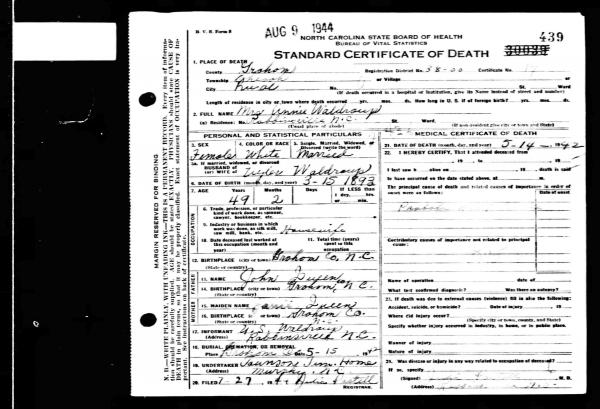 B. V. S. Form 8
AUG 9 1944
NORTH CAROLINA STATE BOARD OF HEALTH
BUREAU OF VITAL STATISTICS
STANDARD CERTIFICATE OF DEATH
439
1. PLACE OF DEATH
County Graham
Registration District No. 38-00 Certificate No.
Township or Village
City Rural St. Ward
(If death occurred in a hospital or institution, give its Name instead of street and number)
Length of residence in city or town where death occurred yrs. mos. ds. How long in U. S. if of foreign birth? yrs. mos. ds.
2. FULL NAME Mrs Annie Waldroup
(a) Residence: No. Robbinsville N.C. St. Ward
(Usual place of abode) (If non-resident give city or town, county and State)
PERSONAL AND STATISTICAL PARTICULARS
3. SEX Female
4. COLOR OR RACE White
5. Single, Married, Widowed, or Divorced (write the word) Married
5a. If married, widowed, or divorced
HUSBAND of
(or) WIFE of Waldroup
6. DATE OF BIRTH (month, day, and year) 3-15 1893
7. AGE Years 49 Months 2 Days If LESS than 1 day, hrs. or min.
OCCUPATION
8. Trade, profession, or particular kind of work done, as spinner, sawyer, bookkeeper, etc.
9. Industry or business in which work was done, as silk mill, saw mill, bank, etc. Housewife
10. Date deceased last worked at this occupation (month and year)
11. Total time (years) spent in this occupation
12. BIRTHPLACE (city or town) Graham Co, N.C.
(State or country)
FATHER
13. NAME John Queen
14. BIRTHPLACE (city or town) Graham, N.C.
(State or country)
MOTHER
15. MAIDEN NAME Queen
16. BIRTHPLACE (city or town) Graham Co.
(State or country) N.C.
17. INFORMANT Waldroup
(Address) Robbinsville N.C.
18. BURIAL, CREMATION, OR REMOVAL
Place 5-15 1942
19. UNDERTAKER Townson Fun. Home
(Address) Murphy, N.C.
20. FILED 7-27 1944
REGISTRAR.
MEDICAL CERTIFICATE OF DEATH
21. DATE OF DEATH (month, day, and year) 5-14 1942
22. I HEREBY CERTIFY, That I attended deceased from
, 19 , to , 19
I last saw h alive on , 19 , death is said
to have occurred on the date stated above, at m.
The principal cause of death and related causes of importance in order of onset were as follows:
Date of onset
Contributory causes of importance not related to principal cause:
Name of operation date of
What test confirmed diagnosis? Was there an autopsy?
23. If death was due to external causes (violence) fill in also the following:
Accident, suicide, or homicide? Date of injury , 19
Where did injury occur?
(Specify city or town, county, and State)
Specify whether injury occurred in industry, in home, or in public place.
Manner of injury
Nature of injury
24. Was disease or injury in any way related to occupation of deceased?
If so, specify
(Signed) M. D.
(Address)
MARGIN RESERVED FOR BINDING
N. B.—WRITE PLAINLY, WITH UNFADING INK—THIS IS A PERMANENT RECORD. Every item of information should be carefully supplied. AGE should be stated EXACTLY. PHYSICIANS should state CAUSE OF DEATH in plain terms, so that it may be properly classified. Exact statement of OCCUPATION is very important. See instructions on back of certificate.